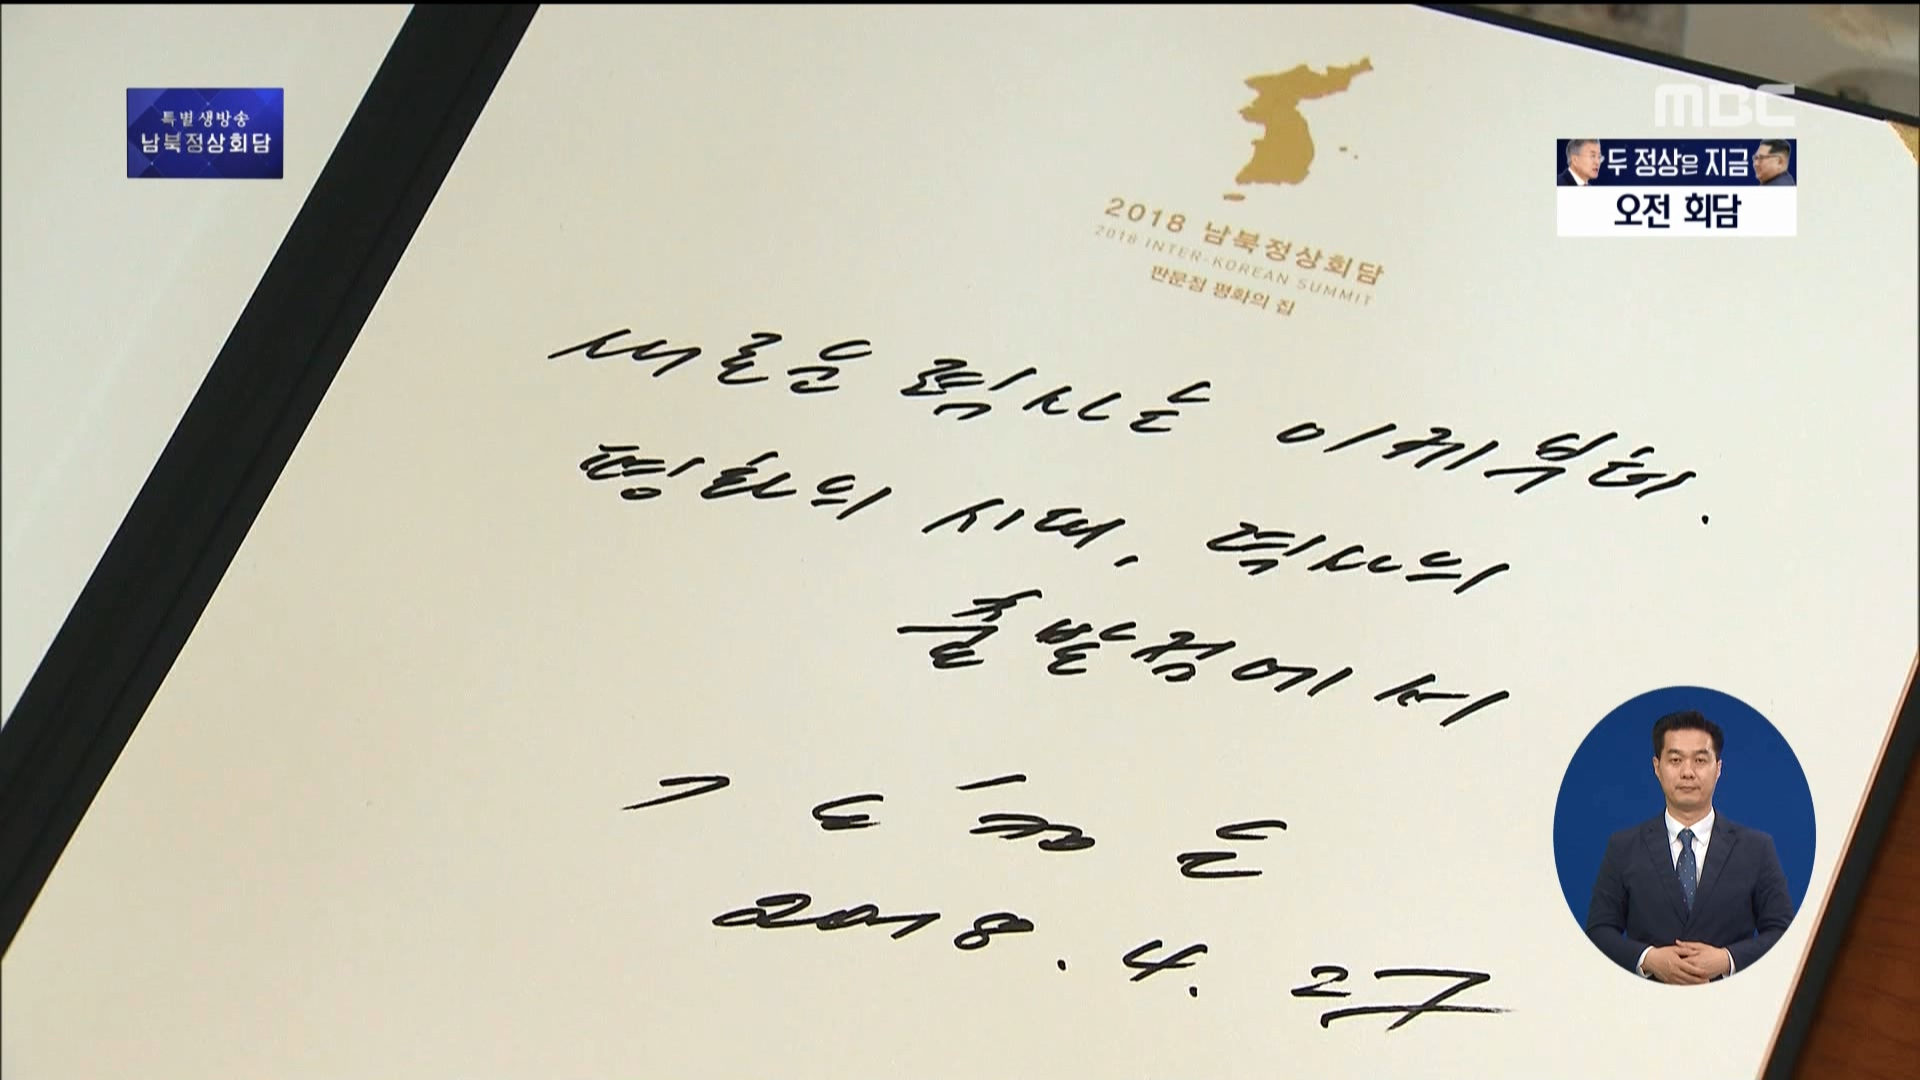 특별 생방송
남북정상회담
MBC
두 정상은 지금
오전 회담
2018 남북정상회담
2018 INTER-KOREAN SUMMIT
판문점 평화의 집
새로운 력사는 이제부터.
평화의 시대, 력사의
출발점에서
김정은
2018. 4. 27